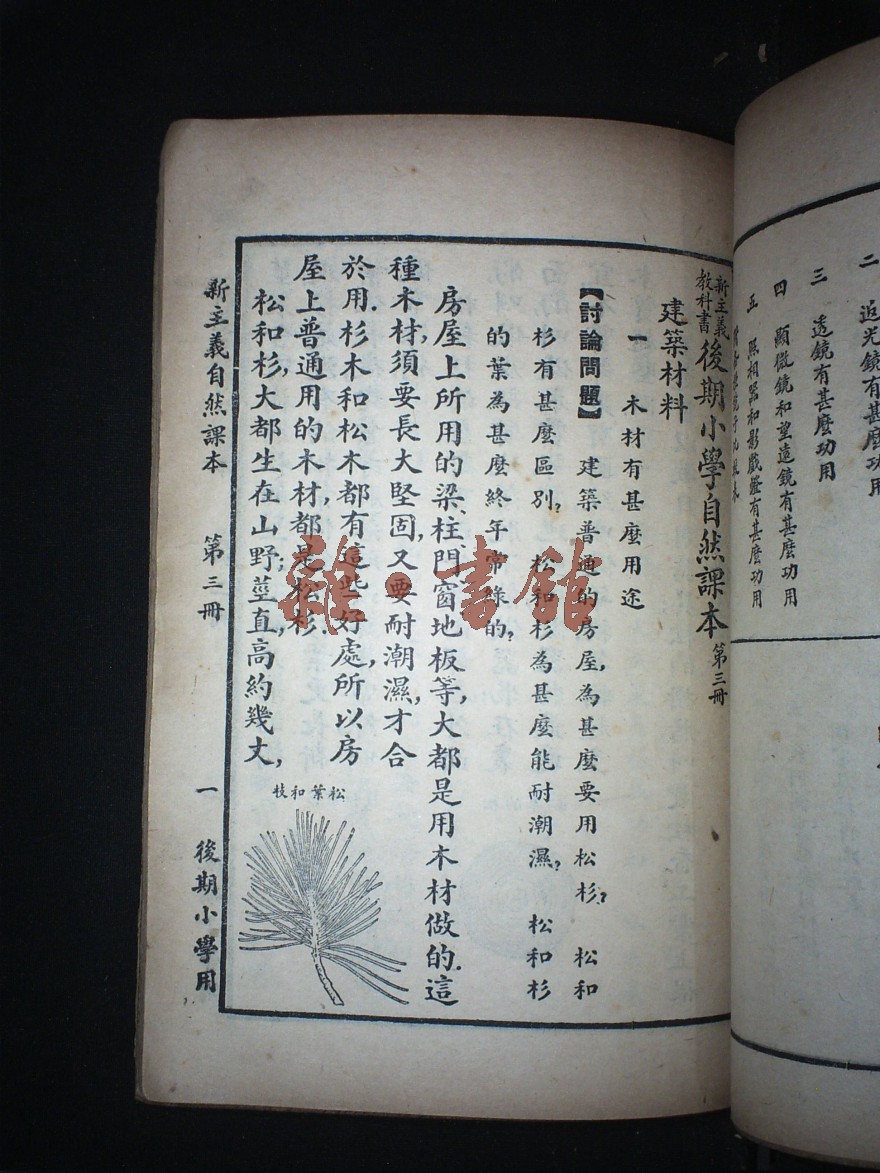 二　近光鏡有甚麼功用
三　透鏡有甚麼功用
四　顯微鏡和望遠鏡有甚麼功用
五　照相器和影戲燈有甚麼功用
新主義
教科書
後期小學自然課本 第三冊
建築材料
一　木材有甚麼用途
【討論問題】　建築普通的房屋,為甚麼要用松杉?　松和
杉有甚麼區別?　松和杉為甚麼能耐潮濕?　松和杉
的葉為甚麼終年常綠的?
房屋上所用的梁、柱、門窗、地板等,大都是用木材做的.這
種木材,須要長大堅固,又要耐潮濕,才合
於用.杉木和松木都有這些好處,所以房
屋上普通用的木材,都是松杉.
松和杉,大都生在山野;莖直,高約幾丈,
松葉和枝
新主義自然課本　第三冊　一　後期小學用
雜·書館